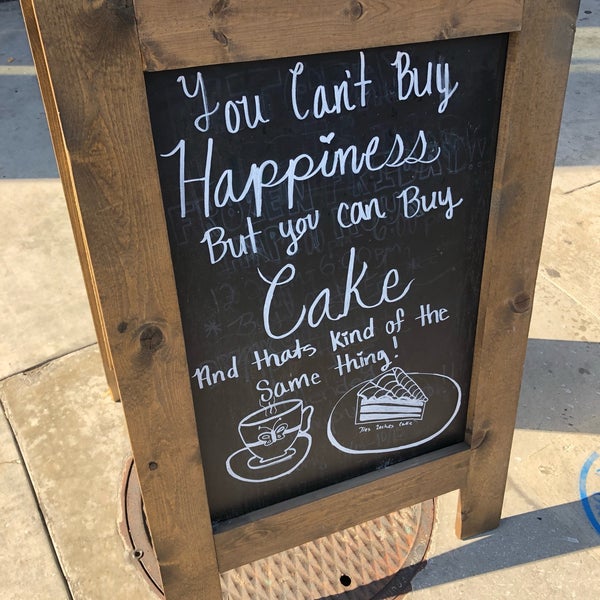 You Can't Buy
Happiness
But you can Buy
Cake
And thats kind of the
Same thing!
Tres Leches Cake